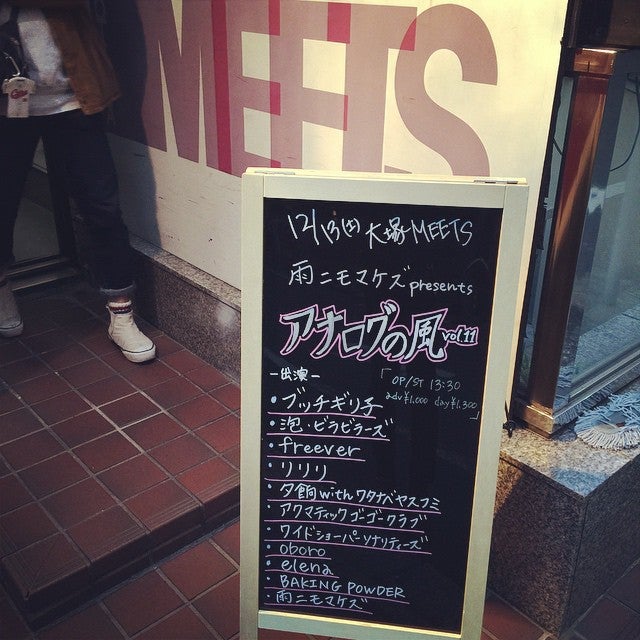 MEETS
12/13(土) 大塚MEETS
雨ニモマケズpresents
アナログの風vol.11
-出演-
「OP/ST 13:30
adv¥1,000 day¥1,300」
・ブッチギリ子
・泡・ビラビラーズ
・freever
・リリリ
・夕餉withワタナベヤスフミ
・アクマティックゴーゴークラブ
・ワイドショーパーソナリティーズ
・oboro
・elena
・BAKING POWDER
・雨ニモマケズ